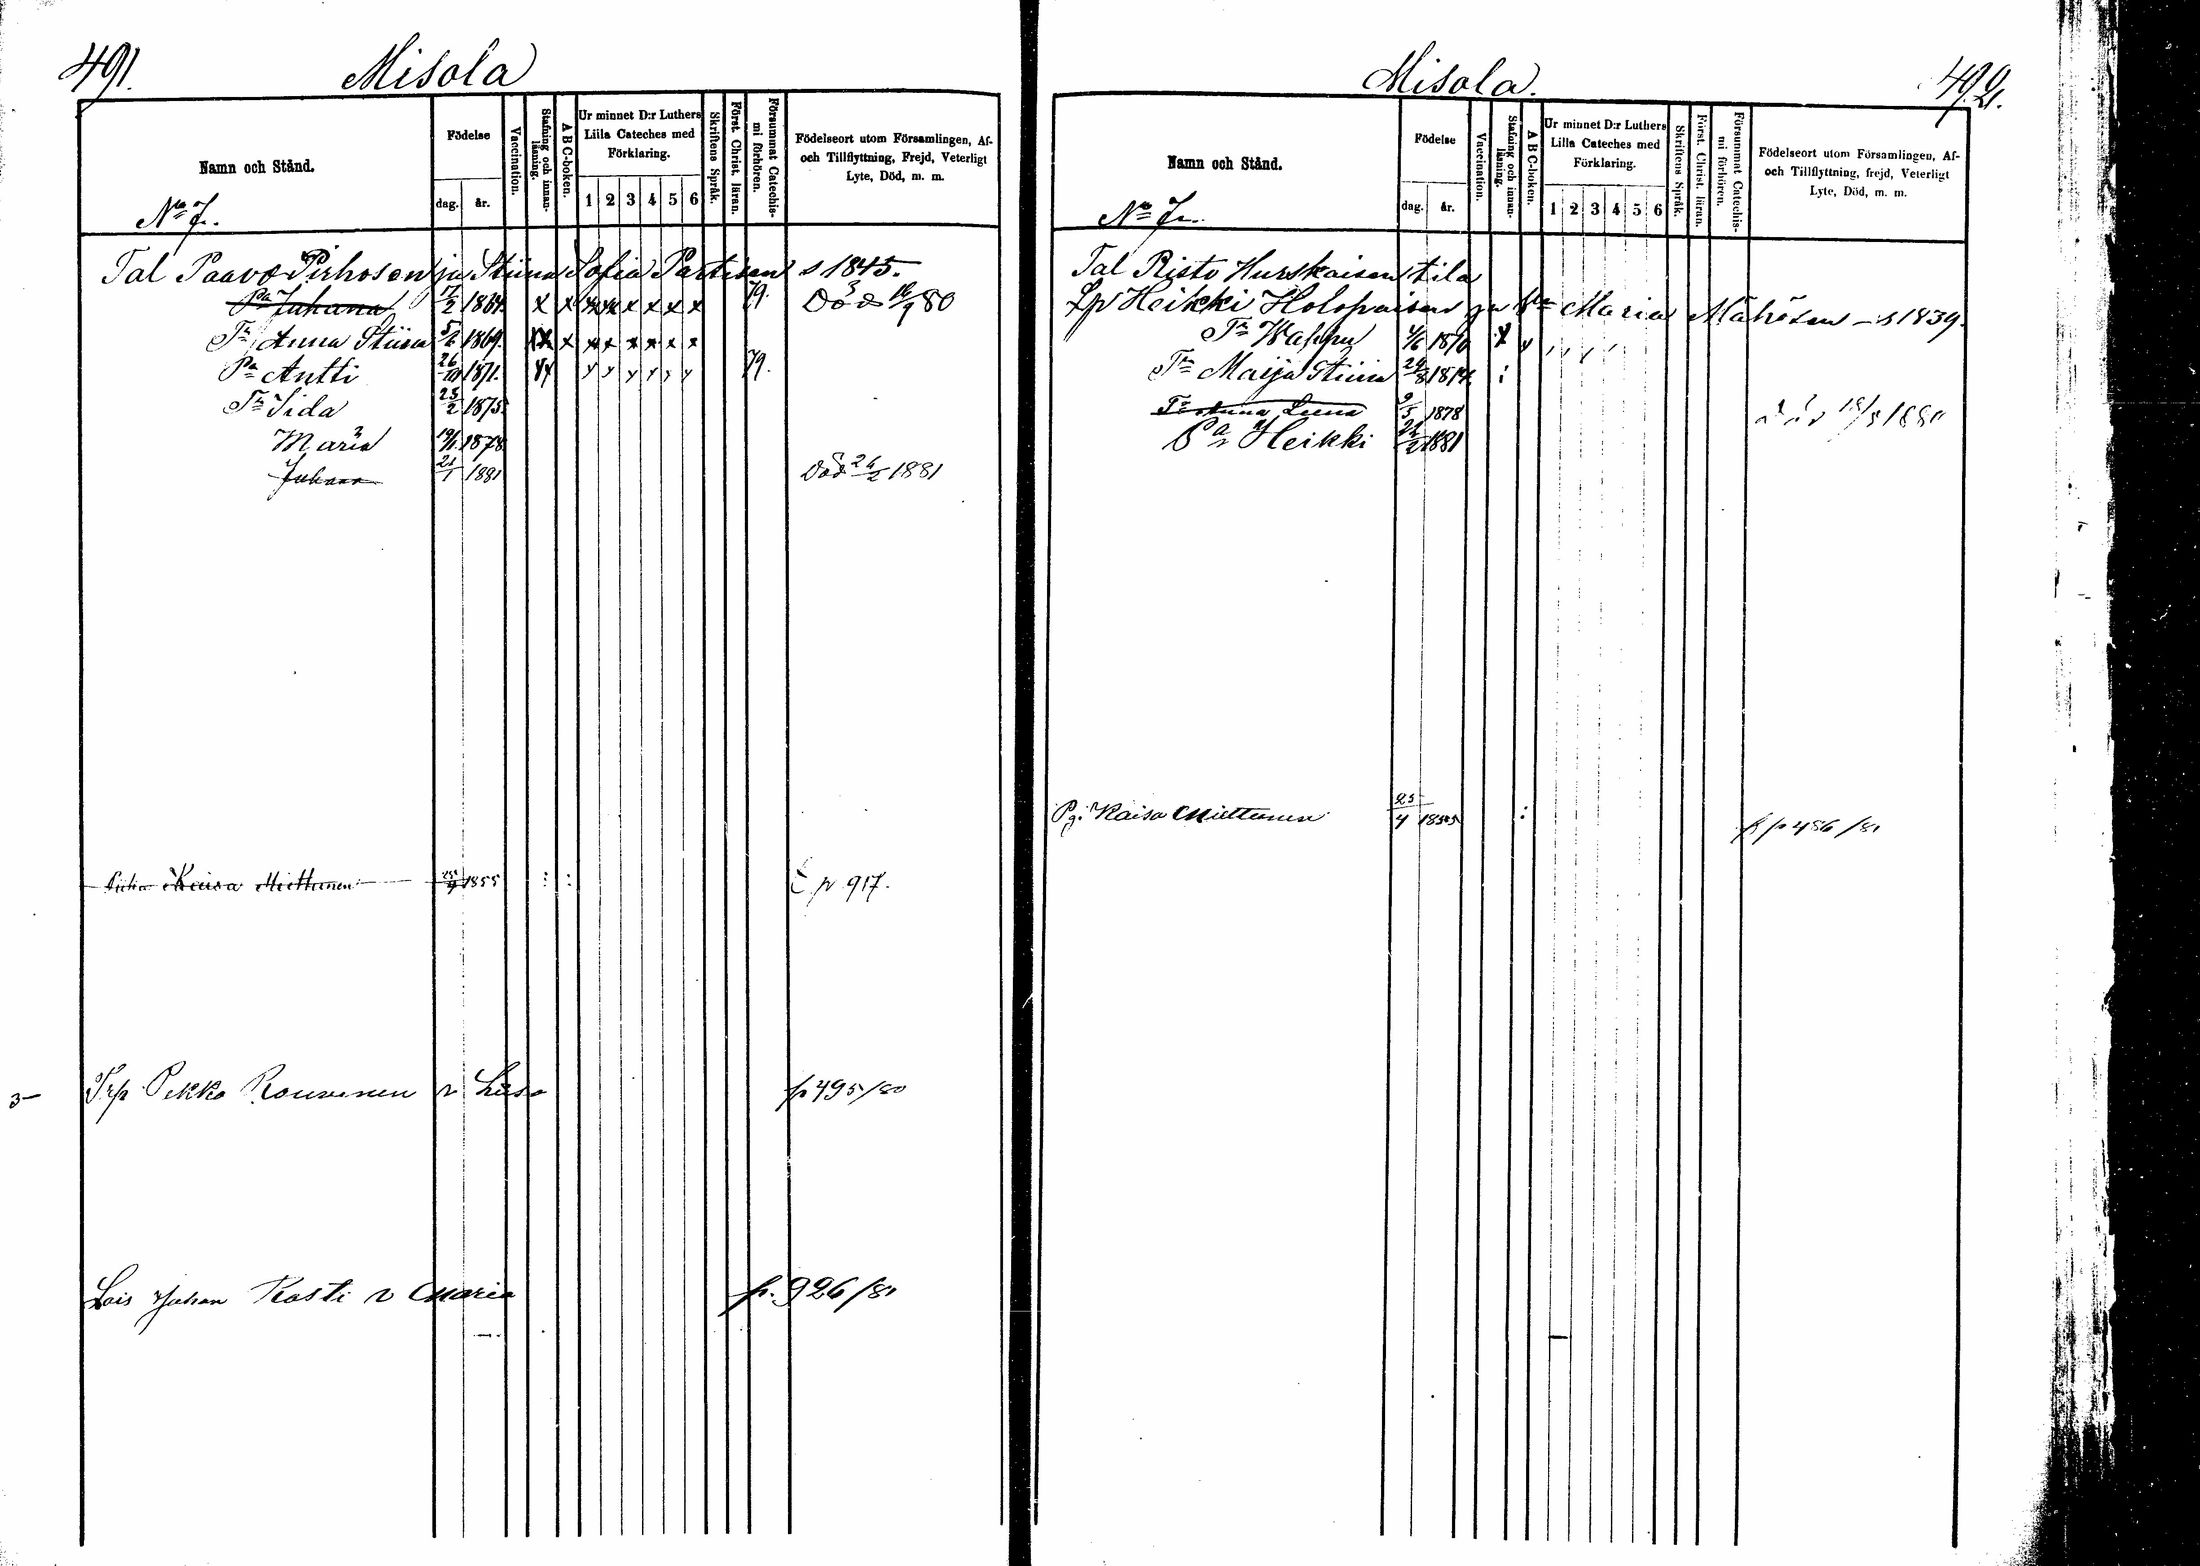 491.
Misola
Namn och Stånd.
Födelse
dag.
år.
Vaccination.
Stafning och innan-
läsning.
A B C-boken.
Ur minnet D:r Luthers
Lilla Cateches med
Förklaring.
1 2 3 4 5 6
Skriftens Språk.
Först. Christ. läran.
Försummat Catechis-
mi förhören.
Födelseort utom Församlingen, Af-
och Tillflyttning, Frejd, Veterligt
Lyte, Död, m. m.
No 7.
Tal Paavo Pirhosen ja Stiina Sofia Partisen s 1845.
Pa Juhana 17/2 1867. x x x x x x x x 79. Död 16/9 80
Tr Anna Stiina 5/6 1869. x x x x x x x
Pa Antti 26/10 1871. 79.
Tr Iida 25/2 1875
Maria 19/1 1878
Juhana 21/1 1881 Död 24/2 1881
Kaisa Miettunen 25/4 1855 : : p 917.
3—
Pekka Rousunen v Liisa p 495/80
Lois Juhan Kosti v Maria p. 926/81
Misola.
492.
Namn och Stånd.
Födelse
dag.
år.
Vaccination.
Stafning och innan-
läsning.
A B C-boken.
Ur minnet D:r Luthers
Lilla Cateches med
Förklaring.
1 2 3 4 5 6
Skriftens Språk.
Först. Christ. läran.
Försummat Catechis-
mi förhören.
Födelseort utom Församlingen, Af-
och Tillflyttning, frejd, Veterligt
Lyte, Död, m. m.
No 7.
Tal Risto Hurskaisen tila
Lp Heikki Holopaisen ja Maria Mähösen - s 1839.
Tr Wappu 4/6 1870
Tr Maija Stiina 24/8 1874 :
Tr Anna Leena 9/5 1878 Död 18/8 1880
Pa Heikki 22/2 1881
Pg. Kaisa Miettunen 25/4 1855 : p 486/81